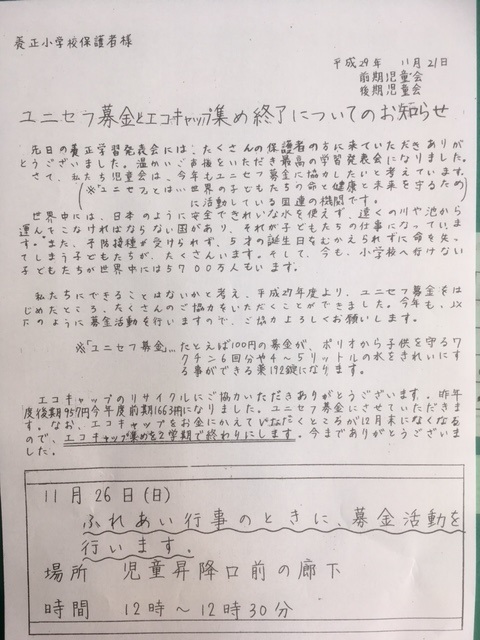 養正小学校保護者様
平成29年 11月21日
前期児童会
後期児童会
ユニセフ募金とエコキャップ集め終了についてのお知らせ
先日の養正学習発表会には、たくさんの保護者の方に来ていただきありが
とうございました。温かいご声援をいただき最高の学習発表会になりました。
さて、私たち児童会は、今年もユニセフ募金に協力したいと考えています。
(※「ユニセフ」とは…世界の子どもたちの命と健康と未来を守るため
に活動している国連の機関です。)
世界中には、日本のように安全できれいな水を使えず、遠くの川や池から
運んでこなければならない国があり、それが子どもたちの仕事になっていま
す。また、予防接種が受けられず、5才の誕生日をむかえられずに命を失っ
てしまう子どもたちが、たくさんいます。そして、今も、小学校へ行けない
子どもたちが世界中には5700万人もいます。
私たちにできることはないかと考え、平成27年度より、ユニセフ募金をは
じめたところ、たくさんのご協力をいただくことができました。今年も、以
下のように募金活動を行いますので、ご協力よろしくお願いします。
※「ユニセフ募金」…たとえば100円の募金が、ポリオから子供を守るワ
クチン6回分や4~5リットルの水をきれいにす
る事ができる薬192錠になります。
エコキャップのリサイクルにご協力いただきありがとうございます。昨年
度後期957円今年度前期1663円になりました。ユニセフ募金にさせていただきま
す。なお、エコキャップをお金にかえていただくところが12月末になくなる
ので、エコキャップ集めを2学期で終わりにします。今までありがとうございま
した。
11月26日(日)
ふれあい行事のときに、募金活動を
行います。
場所 児童昇降口前の廊下
時間 12時~12時30分